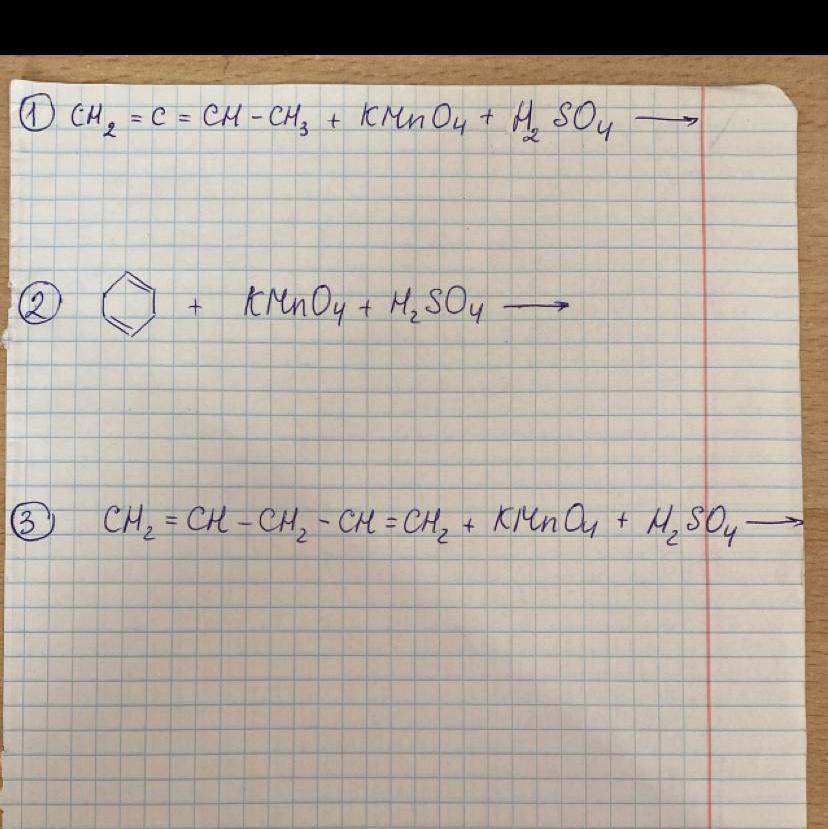 ① CH₂ = C = CH - CH₃ + KMnO₄ + H₂SO₄ ⟶
② + KMnO₄ + H₂SO₄ ⟶
③ CH₂ = CH - CH₂ - CH = CH₂ + KMnO₄ + H₂SO₄ ⟶